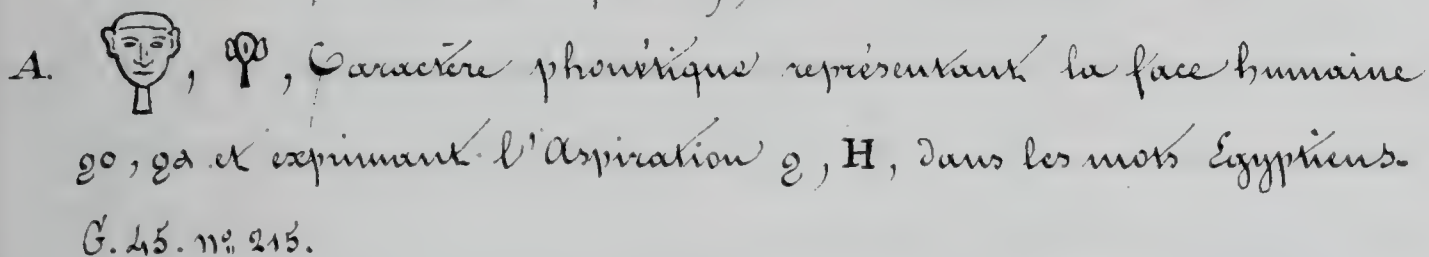 A. 𓁷, 𓁷, Caractère phonétique représentant la face humaine
ϩο, ϩα et exprimant l'Aspiration ϩ, H, dans les mots Égyptiens.
G. 45. nº 215.